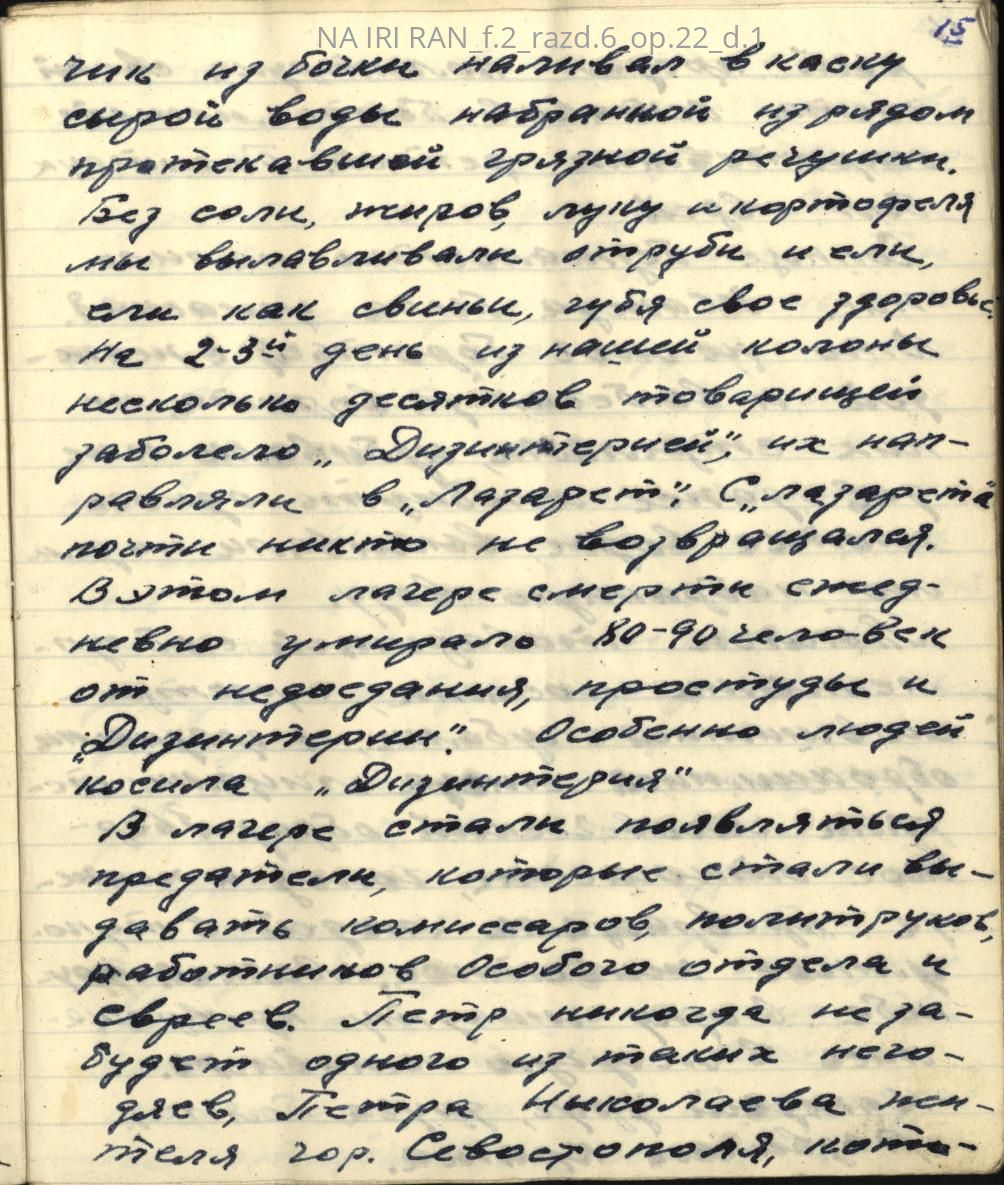 NA IRI RAN_f.2_razd.6_op.22_d.1
15
чик из бочки наливал в каску
сырой воды набранной из рядом
протекавшей грязной речушки.
Без соли, жиров, луку и картофеля
мы вылавливали отруби и ели,
ели как свиньи, губя свое здоровье.
На 2-3й день из нашей колоны
несколько десятков товарищей
заболело „Дизинтерией", их нап-
равляли в „Лазарет". С „лазарета"
почти никто не возвращался.
В этом лагере смерти ежед-
невно умирало 80-90 человек
от недоедания, простуды и
„Дизинтерии". Особенно людей
косила „Дизинтерия"
В лагере стали появляться
предатели, которые стали вы-
давать комиссаров, политруков,
работников Особого отдела и
евреев. Петр никогда не за-
будет одного из таких него-
дяев, Петра Николаева жи-
теля гор. Севостополя, кото-